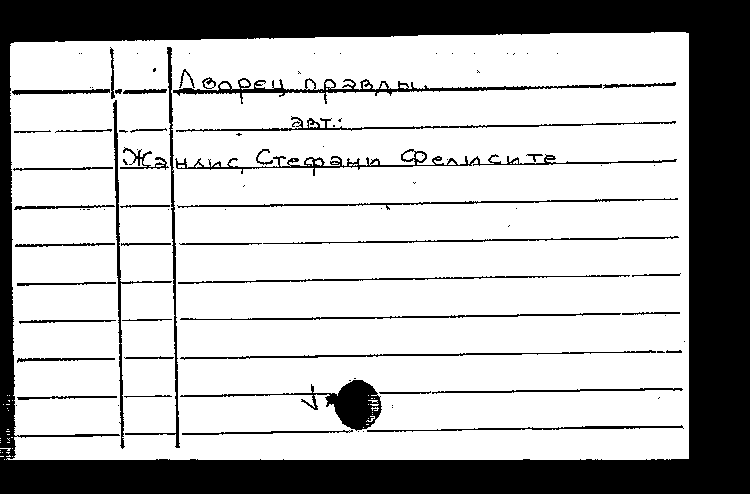 Дворец правды.
авт.:
Жанлис, Стефани Фелисите